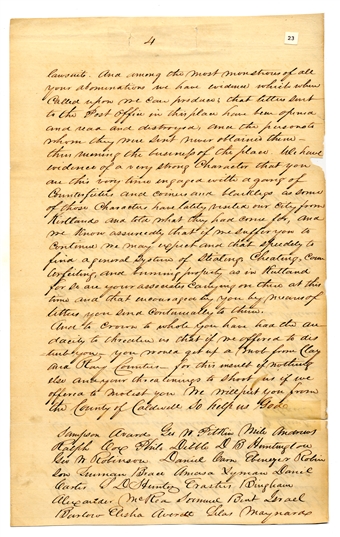 4
23
lawsuits. And among the most monstrous of all
your abominations we have evidence which when
called upon we can produce; that letters sent
to the Post Office in this place have been opened
and read and distroyed and the persons to
whom they were sent never obtained them—
thus ruining the business of the place. We have
evidence of a very strong character that you
are this very time engaged with a gang of
Counterfeiters and coiners and blacklegs as some
of those Characters have lately visited our City from
Kirtland and told what they had come for, and
we know assuredly that if we suffer you to
continue we may expect and that speedily to
find a general System of Stealing, Cheating, Coun
terfeiting, and running property as in Kirtland
for so are your associates carrying on there at this
time and that encouraged by you by means of
letters you send continually to them.
And to crown to whole you have had the au-
dacity to threaten us that if we offered to dis
turb you you would get up a mob from Clay
and Ray Counties. for this insult if nothing
else and your threatenings to shoot us if we
offered to molest you We will put you from
the County of Caldwell So help us God.
Sampson Avard Milo Andrews
Ralph D B Huntington
Geo W Robinson Daniel Carn Ebenezer Robin
son Truman Brace Amasa Lyman Daniel
Carter J D Hunter Erastus Bingham
Alexander McRa Samuel Bent Israel
Barlow Elisha Averett Silas Maynards